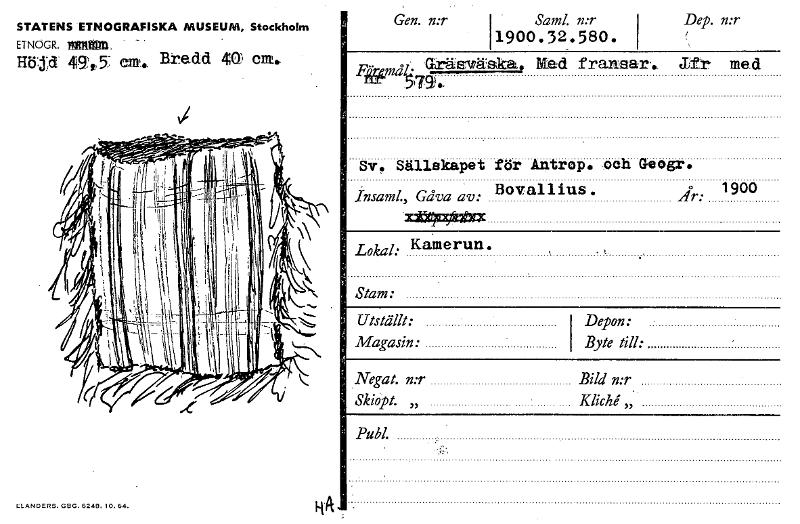 STATENS ETNOGRAFISKA MUSEUM, Stockholm
ETNOGR.
Höjd 49,5 cm. Bredd 40 cm.
Gen. n:r Saml. n:r Dep. n:r
1900.32.580.
Föremål: Gräsväska. Med fransar. Jfr med
nr 579.
Sv. Sällskapet för Antrop. och Geogr.
Insaml., Gåva av: Bovallius. År: 1900
Lokal: Kamerun.
Stam:
Utställt: Depon:
Magasin: Byte till:
Negat. n:r Bild n:r
Skiopt. „ Kliché „
Publ.
ELANDERS. GBG. 6248. 10. 64.
HA.